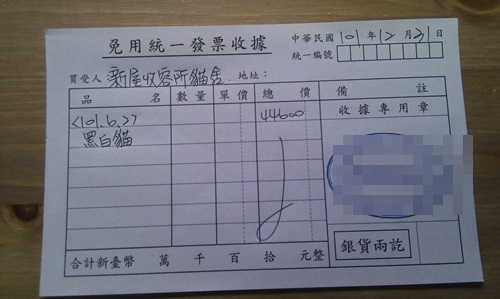 免用統一發票收據
中華民國 101 年 12 月 31 日
統一編號
買受人 新屋收容所貓舍. 地址:
品名 數量 單價 總價 備註
<101.6.27 44600 收據專用章
黑白貓
銀貨兩訖
合計新臺幣 萬 千 百 拾 元整